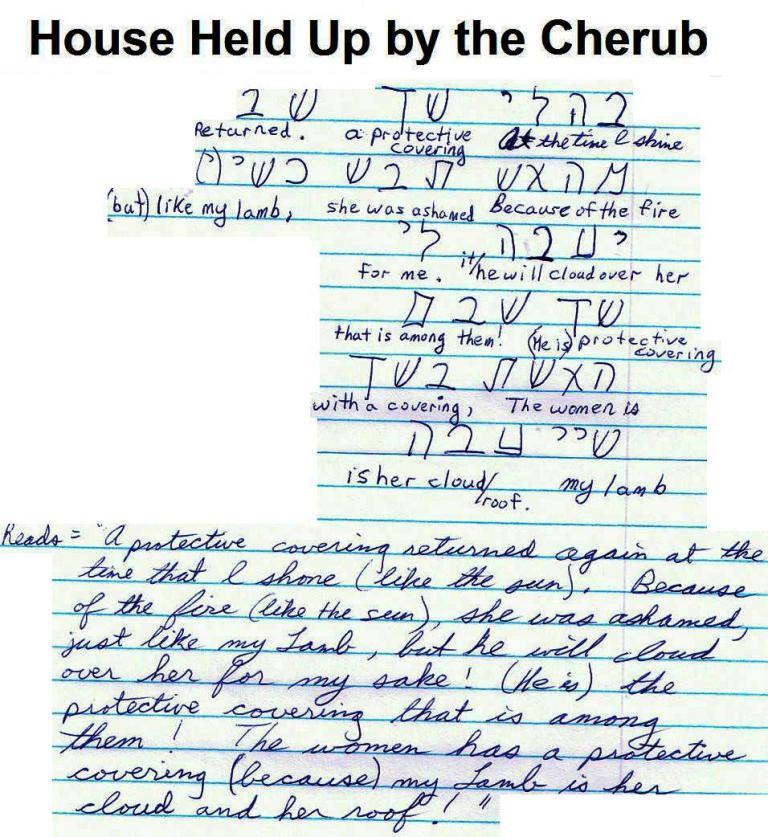 House Held Up by the Cherub
בהלי שד שב
Returned. a protective covering At the time I shine
מהאש תבש כשי (ו)
(but) like my lamb, she was ashamed Because of the fire
יעבה לי
for me. it/he will cloud over her
שד שבם
that is among them! (He is) protective covering
האשת בשד
with a covering, The women is
שיי עבה
is her cloud/roof. my lamb
Reads = "A protective covering returned again at the
time that I shone (like the sun). Because
of the fire (like the sun), she was ashamed,
just like my Lamb, but he will cloud
over her for my sake! (He is) the
protective covering that is among
them! The women has a protective
covering (because) my Lamb is her
cloud and her roof!"